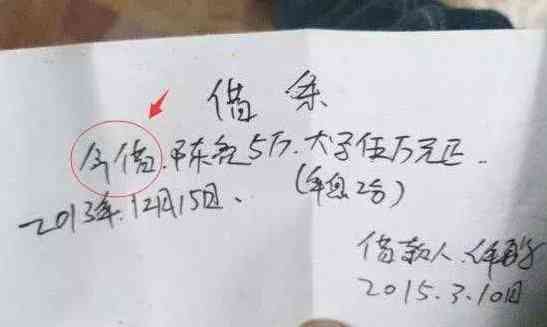 借条
今借.陈宽5万.大写伍万元正.
(年息2分)
2013年.12月15日、
借款人.
2015.3.10日